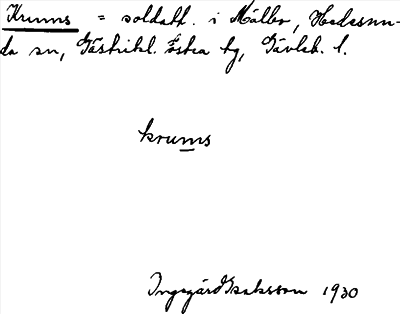 Krums = soldatt. i Mållbo, Hedesun-
da sn, Gästrikl. Östra tg, Gävleb. l.
krums
Ingegärd Isaksson 1930